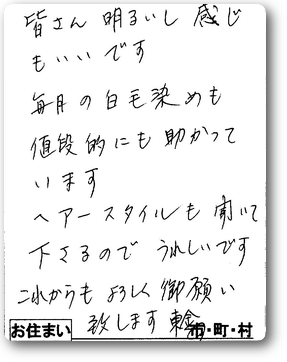 皆さん 明るいし 感じ
もいいです
毎月の白毛染めも
値段的にも 助かって
います
ヘアースタイルも 聞いて
下さるので うれしいです
これからも よろしく御願い
致します
お住まい 市・町・村